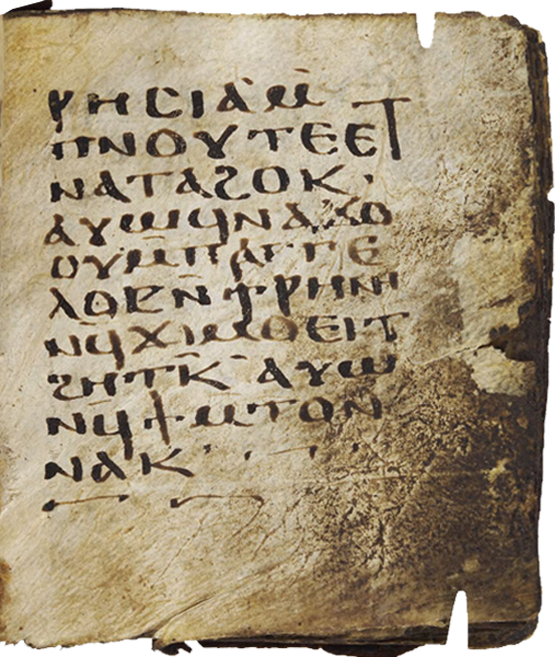 ⲣⲏⲥⲓⲁⲙ̄
ⲡⲛⲟⲩⲧⲉⲉⲧ
ⲛⲁⲧⲁϩⲟⲕ·
ⲁⲩⲱϥⲛⲁϫⲟ
ⲟⲩⲙ̄ⲡⲁⲅⲅⲉ
ⲗⲟⲥⲛ̄ϯⲣⲏⲛⲏ
ⲛϥϫⲓⲙⲟⲉⲓⲧ
ϩⲏⲧⲕ̄ ⲁⲩⲱ
ⲛϥ̄ϯⲙ̄ⲧⲟⲛ
ⲛⲁⲕ·